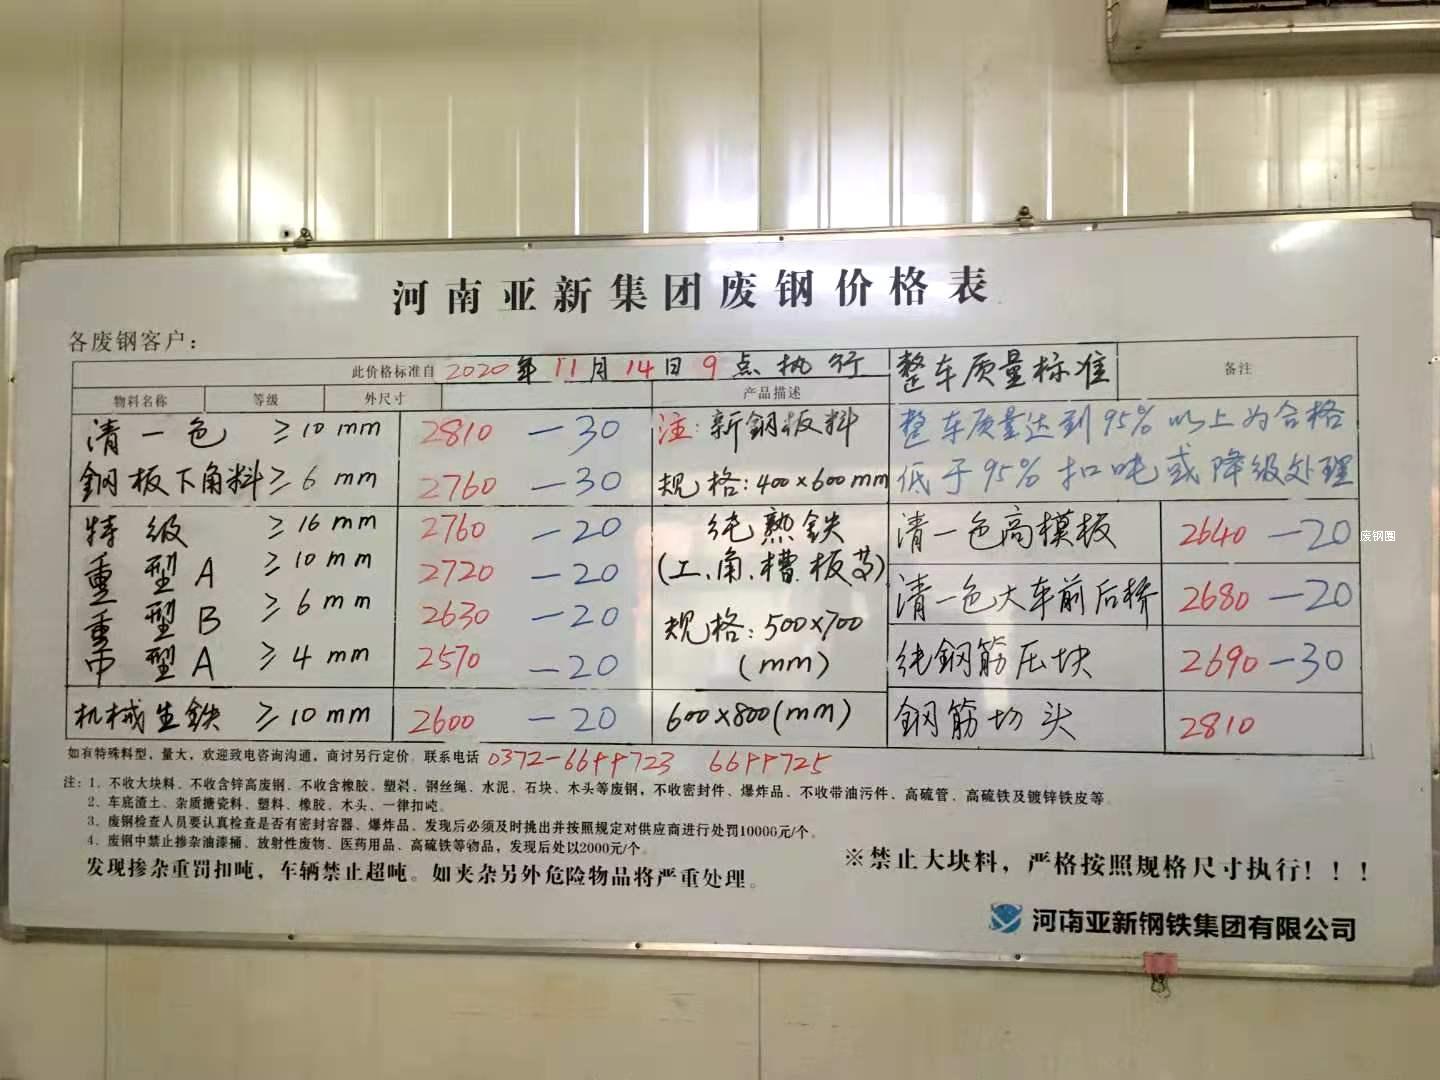 河南亚新集团废钢价格表
各废钢客户：
此价格标准自 2020年11月14日9点执行
整车质量标准
备注
物料名称 等级 外尺寸 产品描述
清一色 ≥10mm 2810 -30
注:新鋼板料
整车质量达到95%以上为合格
鋼板下角料≥6mm 2760 -30
规格:400×600mm
低于95%扣吨或降级处理
特级 ≥16mm 2760 -20
纯熟鉄
清一色高模板 2640 -20
重型A ≥10mm 2720 -20
(工、角、槽、板等)
清一色大车前后桥 2680 -20
重型B ≥6mm 2630 -20
规格:500×700
(mm)
中型A ≥4mm 2570 -20
纯鋼筋压块 2690 -30
机械生鉄 ≥10mm 2600 -20
600×800(mm)
鋼筋切头 2810
如有特殊料型，量大，欢迎致电咨询沟通，商讨另行定价。联系电话 0372-6699723 6699725
注：1、不收大块料、不收含锌高废钢、不收含橡胶、塑料、钢丝绳、水泥、石块、木头等废钢，不收密封件、爆炸品、不收带油污件、高硫管、高硫铁及镀锌铁皮等。
2、车底渣土、杂质搪瓷料、塑料、橡胶、木头、一律扣吨。
3、废钢检查人员要认真检查是否有密封容器、爆炸品、发现后必须及时挑出并按照规定对供应商进行处罚10000元/个。
4、废钢中禁止掺杂油漆桶、放射性废物、医药用品、高硫铁等物品，发现后处以2000元/个。
发现掺杂重罚扣吨，车辆禁止超吨。如夹杂另外危险物品将严重处理。
※禁止大块料，严格按照规格尺寸执行！！！
河南亚新钢铁集团有限公司
废钢圈